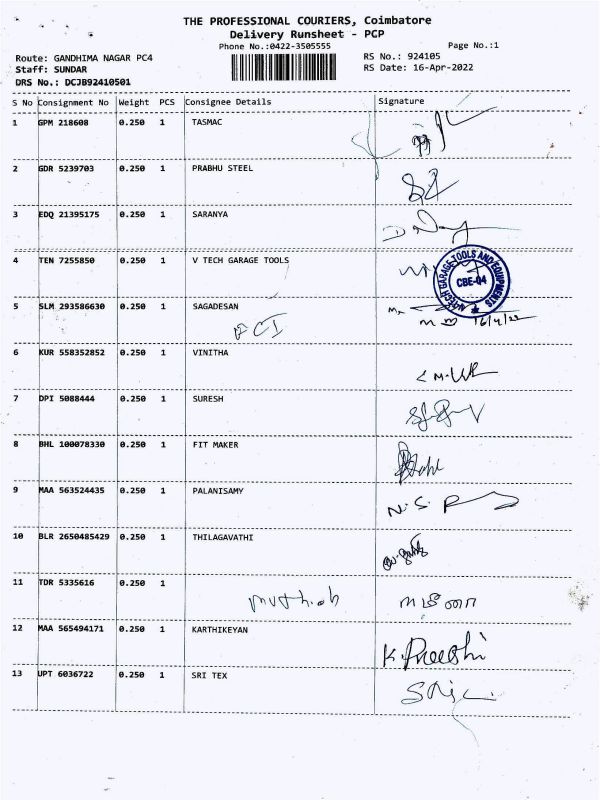 THE PROFESSIONAL COURIERS, Coimbatore
Delivery Runsheet - PCP
Phone No.:0422-3505555
Page No.:1
Route: GANDHIMA NAGAR PC4
RS No.: 924105
Staff: SUNDAR
RS Date: 16-Apr-2022
DRS No.: DCJB92410501
S No Consignment No Weight PCS Consignee Details Signature
1 GPM 218608 0.250 1 TASMAC
2 GDR 5239703 0.250 1 PRABHU STEEL
3 EDQ 21395175 0.250 1 SARANYA
4 TEN 7255850 0.250 1 V TECH GARAGE TOOLS
V-TECH GARAGE TOOLS AND EQUIPMENTS
CBE-04
5 SLM 293586630 0.250 1 SAGADESAN
16/4/22
6 KUR 558352852 0.250 1 VINITHA
7 DPI 5088444 0.250 1 SURESH
8 BHL 100078330 0.250 1 FIT MAKER
9 MAA 563524435 0.250 1 PALANISAMY
N.S.
10 BLR 2650485429 0.250 1 THILAGAVATHI
11 TDR 5335616 0.250 1
12 MAA 565494171 0.250 1 KARTHIKEYAN
K. Preethi
13 UPT 6036722 0.250 1 SRI TEX